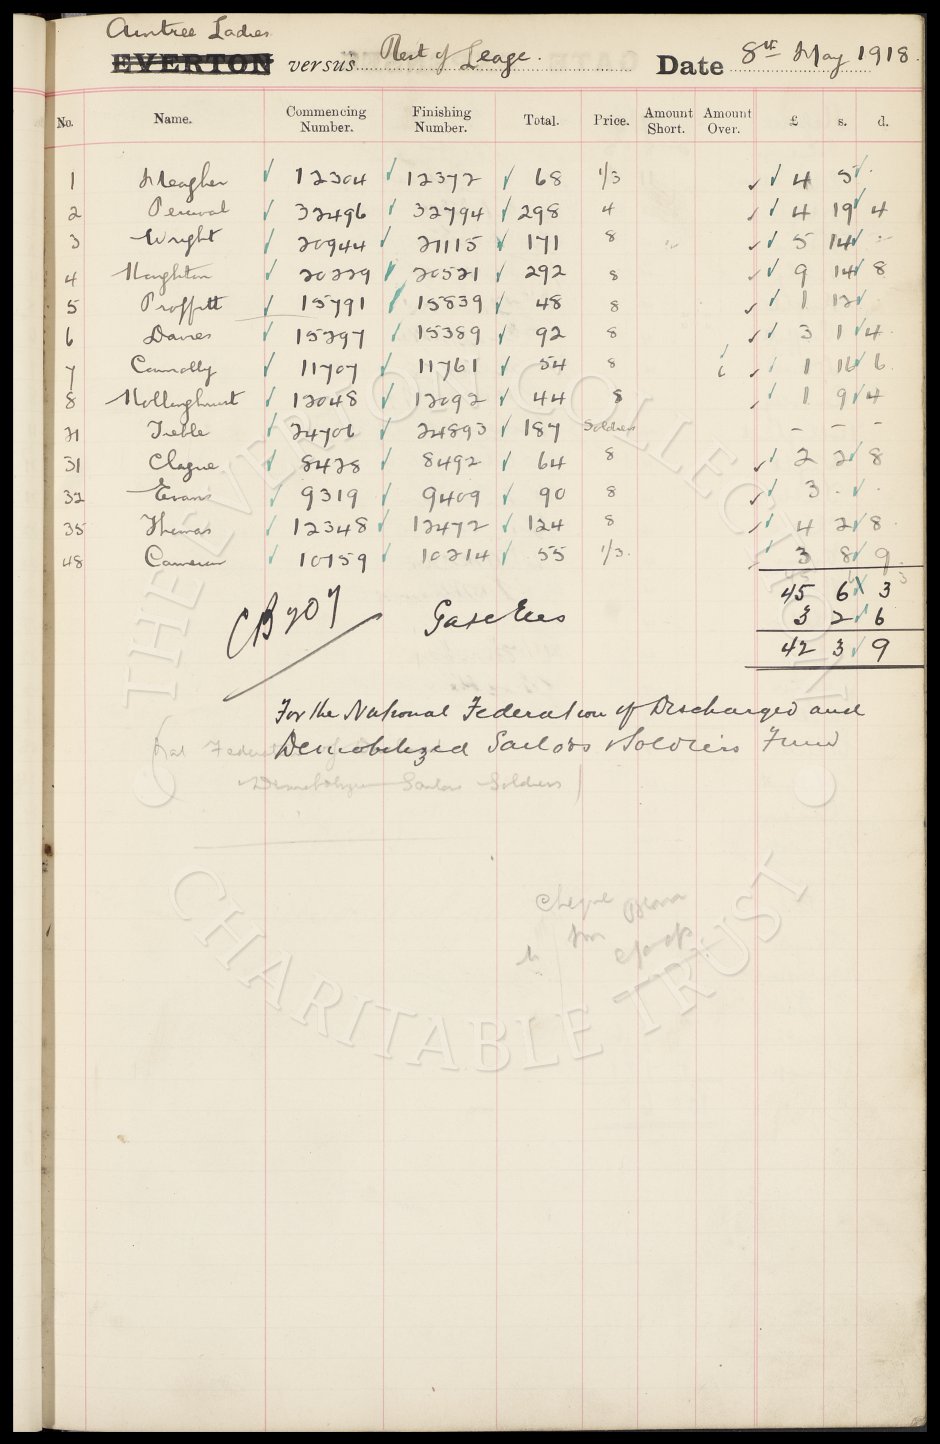 Aintree Ladies
EVERTON versus Rest of Leage. Date 8th May 1918.
No. Name. Commencing Number. Finishing Number. Total. Price. Amount Short. Amount Over. £ s. d.
1 Meagher 12304 12372 68 1/3 4 5 .
2 Percival 32496 32794 298 4 4 19 4
3 Wright 20944 21115 171 8 5 14 -
4 Houghton 20229 20521 292 8 9 14 8
5 Proffitt 15791 15839 48 8 1 12
6 Davies 15297 15389 92 8 3 1 4
7 Connolly 11707 11761 54 8 6 1 16 6
8 Hollinghurst 12048 12092 44 8 1 9 4
21 Treble 24706 24893 187 Soldiers - - -
31 Clague 8428 8492 64 8 2 2 8
32 Evans 9319 9409 90 8 3 . .
35 Thomas 12348 12472 124 8 4 2 8
48 Cameron 10159 10214 55 1/3 3 8 9
45 6 3
CB 707 Gatekees 3 2 6
42 3 9
For the National Federation of Discharged and
Demobilized Sailors & Soldiers Fund
Nat Federat
Demobilize Sailors Soldiers)
Cheque
THE EVERTON COLLECTION
CHARITABLE TRUST